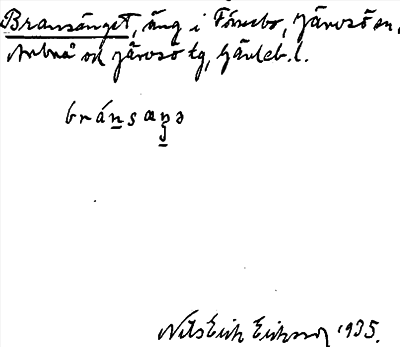 Bransänget, äng i Fönebo, Järvsö sn,
Arbrå och Järvsö tg, Gävleb. l.
bránsaŋə
Nils Erik Eriksson 1935.